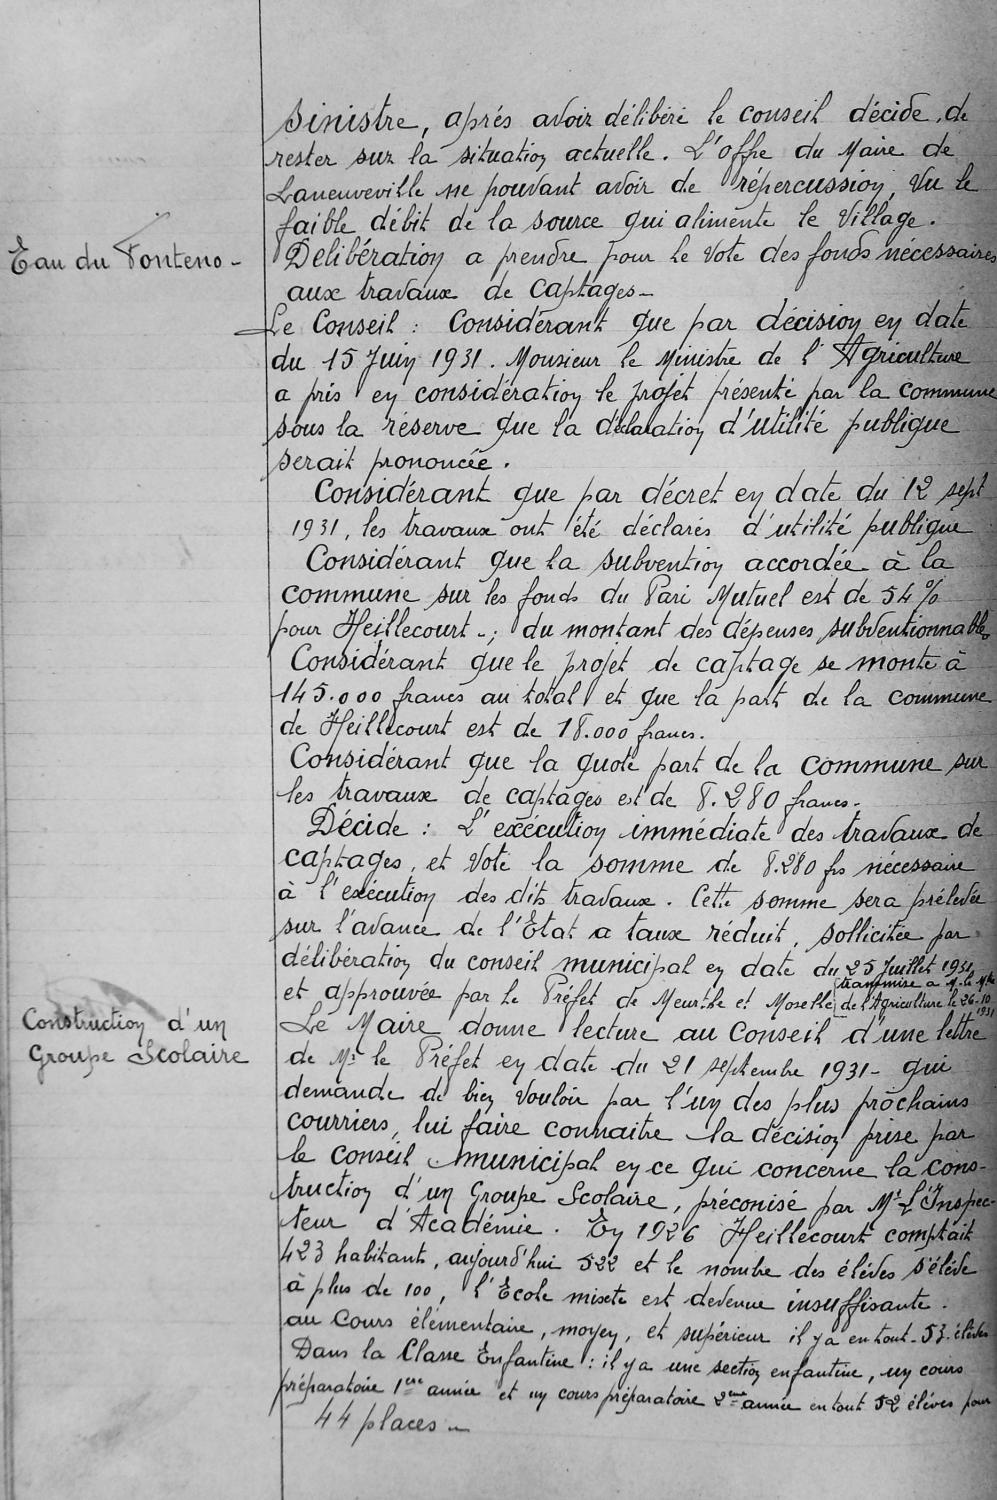 sinistre, aprés avoir délibéré le conseil décide de
rester sur la situation actuelle. L'offre du Maire de
Laneuveville ne pouvant avoir de répercussion, Vu le
faible débit de la source qui alimente le Village.
Eau du Fonteno -
Délibération a prendre pour le Vote des fonds nécessaires
aux travaux de captages -
Le Conseil : Considérant que par décision en date
du 15 Juin 1931. Monsieur le Ministre de l'Agriculture
a pris en considération le projet présenté par la commune
sous la réserve que la déclaration d'utilité publique
serait prononcée.
Considérant que par décret en date du 12 sept
1931, les travaux ont été déclarés d'utilité publique
Considérant que la subvention accordée à la
commune sur les fonds du Pari Mutuel est de 54%
pour Heillecourt -; du montant des dépenses subventionnables
Considérant que le projet de captage se monte à
145.000 francs au total et que la part de la commune
de Heillecourt est de 18.000 francs.
Considérant que la quote part de la commune sur
les travaux de captages est de 8.280 francs.
Décide : L'exécution immédiate des travaux de
captages, et Vote la somme de 8.280 frs nécessaire
à l'exécution des dits travaux. Cette somme sera prélevée
sur l'avance de l'Etat a taux réduit, sollicitée par
délibération du conseil municipal en date du 25 Juillet 1931
et approuvée par le Préfet de Meurthe et Moselle
transmise a M. le Mtre
de l'Agriculture le 26-10
1931
Construction d'un
Groupe Scolaire
Le Maire donne lecture au Conseil d'une lettre
de Mr le Préfet en date du 21 septembre 1931 - qui
demande de bien Vouloir par l'un des plus prochains
courriers, lui faire connaitre la décision prise par
le conseil municipal en ce qui concerne la cons-
truction d'un Groupe Scolaire, préconisé par Mr L'Inspec-
teur d'Académie. En 1926 Heillecourt comptait
423 habitants, aujourd'hui 522 et le nombre des éléves s'éléve
à plus de 100, l'Ecole mixte est devenue insuffisante.
au Cours élémentaire, moyen, et supérieur il y a en tout - 53 éléves
Dans la Classe Enfantine : il y a une section enfantine, un cours
préparatoire 1ere année et un cours préparatoire 2eme année en tout 52 éléves pour
44 places -